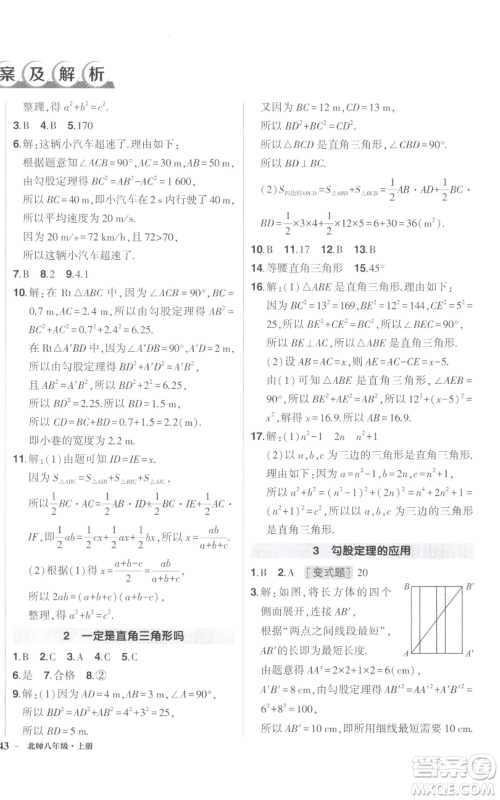 案及解析
整理,得 a²+b²=c².
3.B 4.B 5.170
6.解:这辆小汽车超速了.理由如下:
根据题意知∠ACB=90°,AB=50 m,
由勾股定理得 BC²=AB²-AC²=1 600,
所以 BC=40 m,即小汽车在 2 s 内行驶了 40 m,
所以平均速度为 20 m/s.
因为 20 m/s=72 km/h,且 72>70,
所以这辆小汽车超速了.
7.B 8.2 9.4.1
10.解:在 Rt△ABC 中,∠ACB=90°,BC=0.7 m,AC=2.4 m,所以由勾股定理得 AB²=0.7²+2.4²=6.25.
在 Rt△A'BD 中,∠A'DB=90°,A'D=2 m,
所以由勾股定理得 BD²+A'D²=A'B².
且 AB=A'B,所以 BD²+2²=6.25,
所以 BD²=2.25,所以 BD=1.5 m,
所以 CD=BC+BD=0.7+1.5=2.2(m).
即小巷的宽度为 2.2 m.
11.解:(1)根据题意可知 ID=IE=IF.
因为 S△ABC=S△AIC+S△AIB+S△BIC,
IF,即
(2)根据(1),得
整理,得 a²+b²=c².
2 一定是直角三角形吗
1.B 2.B 3.A 4.C 5.C
6.是 7.合格 8.②
9.解:(1)因为 AD=4 m,AB=3 m,BD=5 m,
所以 AB²+AD²=BD².
所以∠A=90°.
43 - 北师八年级·上册
又因为 BC=12 m,CD=13 m,
所以 BD²+BC²=CD²,
所以△BCD 是直角三角形,
所以∠DBC=90°.
(2)S四边形ABCD=S△ABD+S△BCD=1/2AB·AD+1/2BC·
BD=1/2×3×4+1/2×12×5=6+30=36(m²).
10.B 11.17 12.B 13.B
14.等腰直角三角形 15.45°
16.解:(1)△ABE 是直角三角形.理由如下:
因为 BC²=13²=169,BE²=12²=144,CE²=5²=25,所以 BE²+CE²=BC²,所以∠BEC=90°.
所以 BE⊥AC,所以△ABE 是直角三角形.
(2)设 AB=AC=x,则 AE=AC-CE=x-5.
由(1)可知△ABE 是直角三角形,∠AEB=90°,所以 BE²+AE²=AB²,所以 12²+(x-5)²=x²,所以 x=16.9,所以 AB 的长为 16.9.
17.解:(1)n²-1 2n n²+1
(2)以 a,b,c 为三边的三角形是直角三角形.
理由如下:因为 a=n²-1,b=2n,c=n²+1,
所以 a²+b²=(n²-1)²+(2n)²=n⁴+2n²+1=(n²+1)²=c²,所以以 a,b,c 为三边的三角形是直角三角形.
3 勾股定理的应用
1.B 2.A [变式题] 20
3.解:将长方体的四个侧面展开,如图所示,连接 AB',根据“两点之间线段最短”,所用的细线最短长度为 AB'.
由题意得 AA'=2×2+1×2=6(cm),A'B'=8 cm,所以 AB'²=AA'²+A'B'²=6²+8²=100,
所以 AB'=10 cm,即所用细线最短需要
B B'
A A'